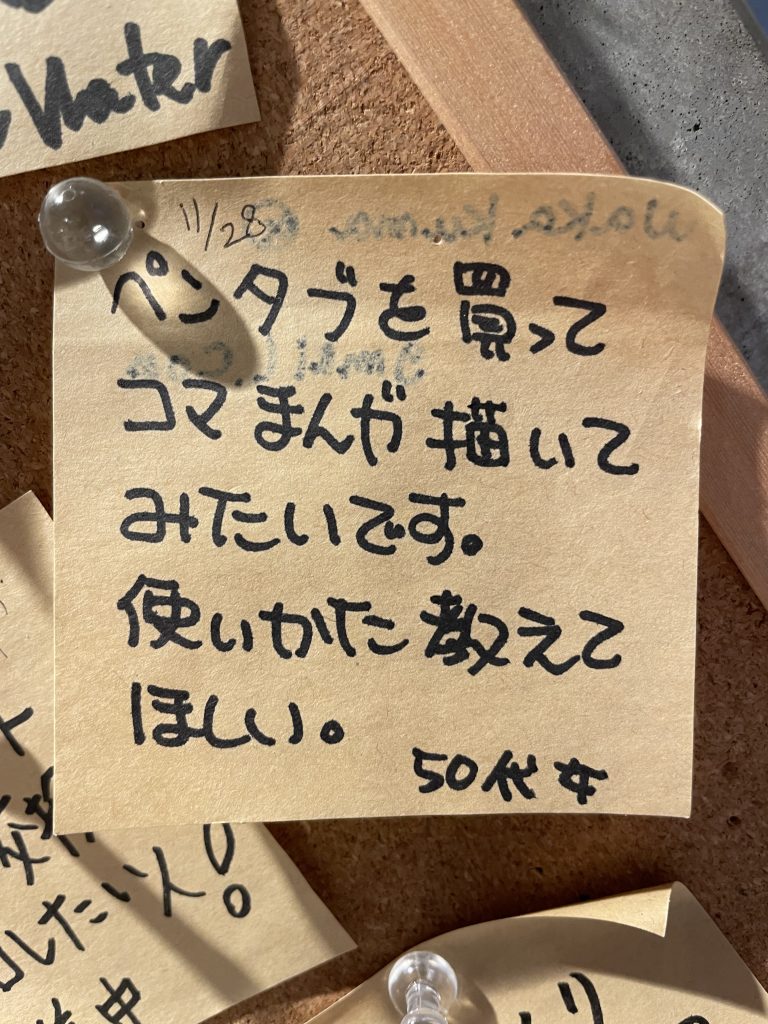 Water
11/28
ペンタブを買って
コマまんが描いて
みたいです。
使いかた教えて
ほしい。
50代 女
したい人!
中